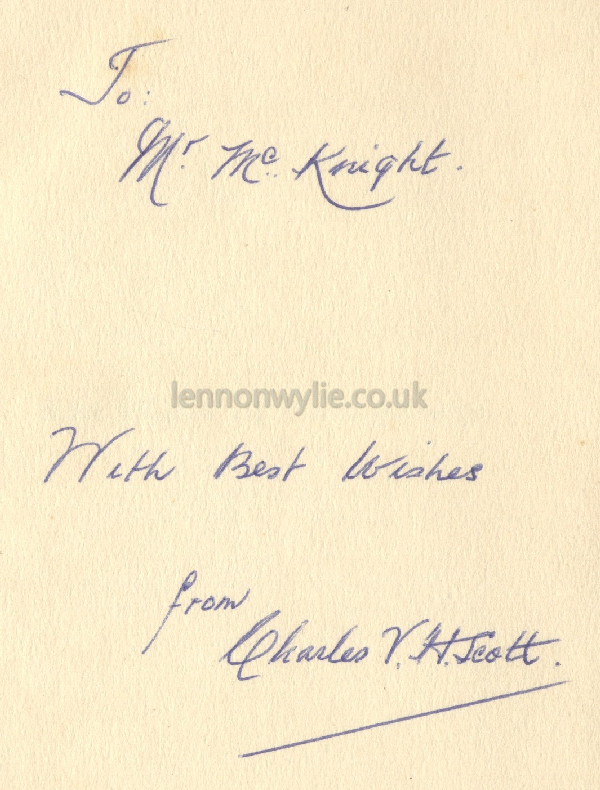 To:
Mr. Mc. Knight.
lennonwylie.co.uk
With Best Wishes
from
Charles V. H. Scott.